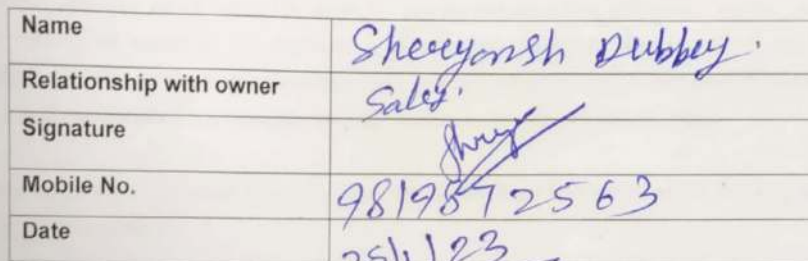 Name Shreyansh Dubbey.
Relationship with owner Sales.
Signature Shrey
Mobile No. 9819872563
Date 25/1/23